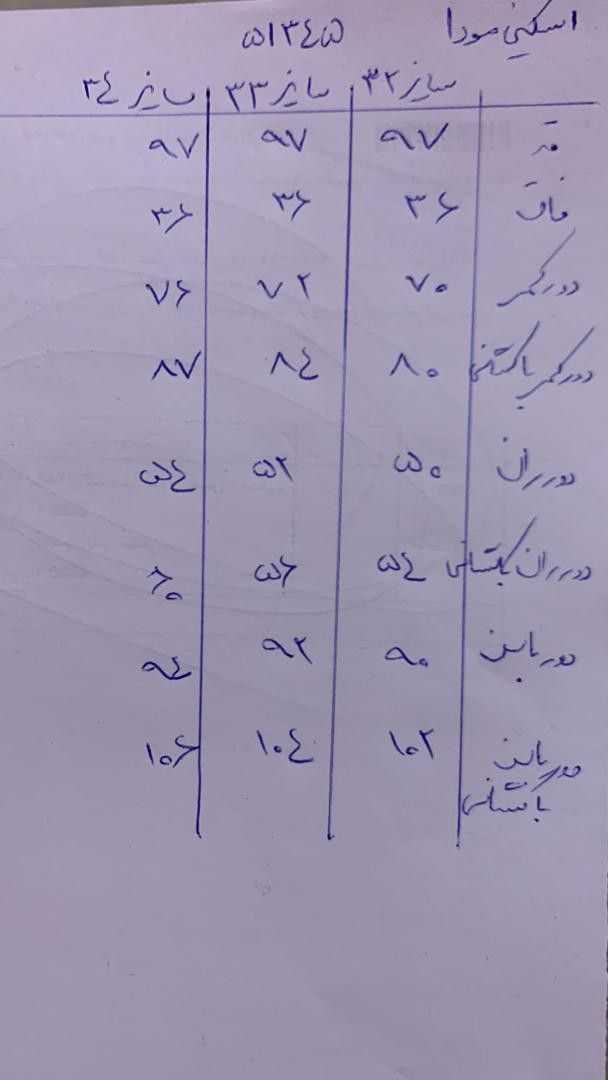 اسکینی مودا ۵۱۳۴۵
سایز ۳۲ سایز ۳۳ سایز ۳۴
قد ۹۷ ۹۷ ۹۷
فاق ۳۶ ۳۶ ۳۶
دورکمر ۷۰ ۷۲ ۷۶
دورکمر باکشش ۸۰ ۸۴ ۸۷
دورران ۵۰ ۵۲ ۵۴
دورران باکشش ۵۴ ۵۶ ۶۰
دورباسن ۹۰ ۹۲ ۹۴
دورباسن ۱۰۲ ۱۰۴ ۱۰۶
باکشش